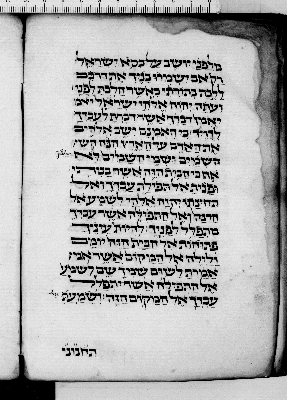 מלפני יושב על כסא ישראל
רק אם ישמרו בניך את דרכם
ללכת בתורתי כאשר הלכת לפני
ועתה יהוה אלהי ישראל יאמן
דברך אשר דברת לעבדך
לדויד כי האמנם ישב אלהים
את האדם על הארץ הנה השמ
השמים ושמי השמים לא
אף כי הבית הזה אשר בניתי
ופנית אל תפלת עבדך ואל
תחנתו יהוה אלהי לשמע אל
הרנה ואל התפלה אשר עבדך
מתפלל לפניך להיות עיניך
פתוחות אל הבית הזה יומם
ולילה אל המקום אשר אמ
אמרת לשום שמך שם לשמוע
אל התפלה אשר יתפלל
עבדך אל המקום הזה ושמעת
תחנוני